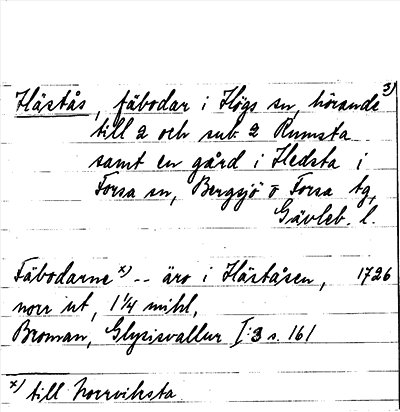 Häståş, fäbodar i Högs sn, hörande 3)
till 2 och sub 2 Rumsta
samt en gård i Hedsta i
Forsa sn, Bergsjö o Forsa tg,
Gävleb. l.
Fäbodarne x) -- äro i Håståsen, 1726
norr ut, 1 1/4 mihl,
Broman, Glysisvallur I:3 s. 161
x) till Norrviksta